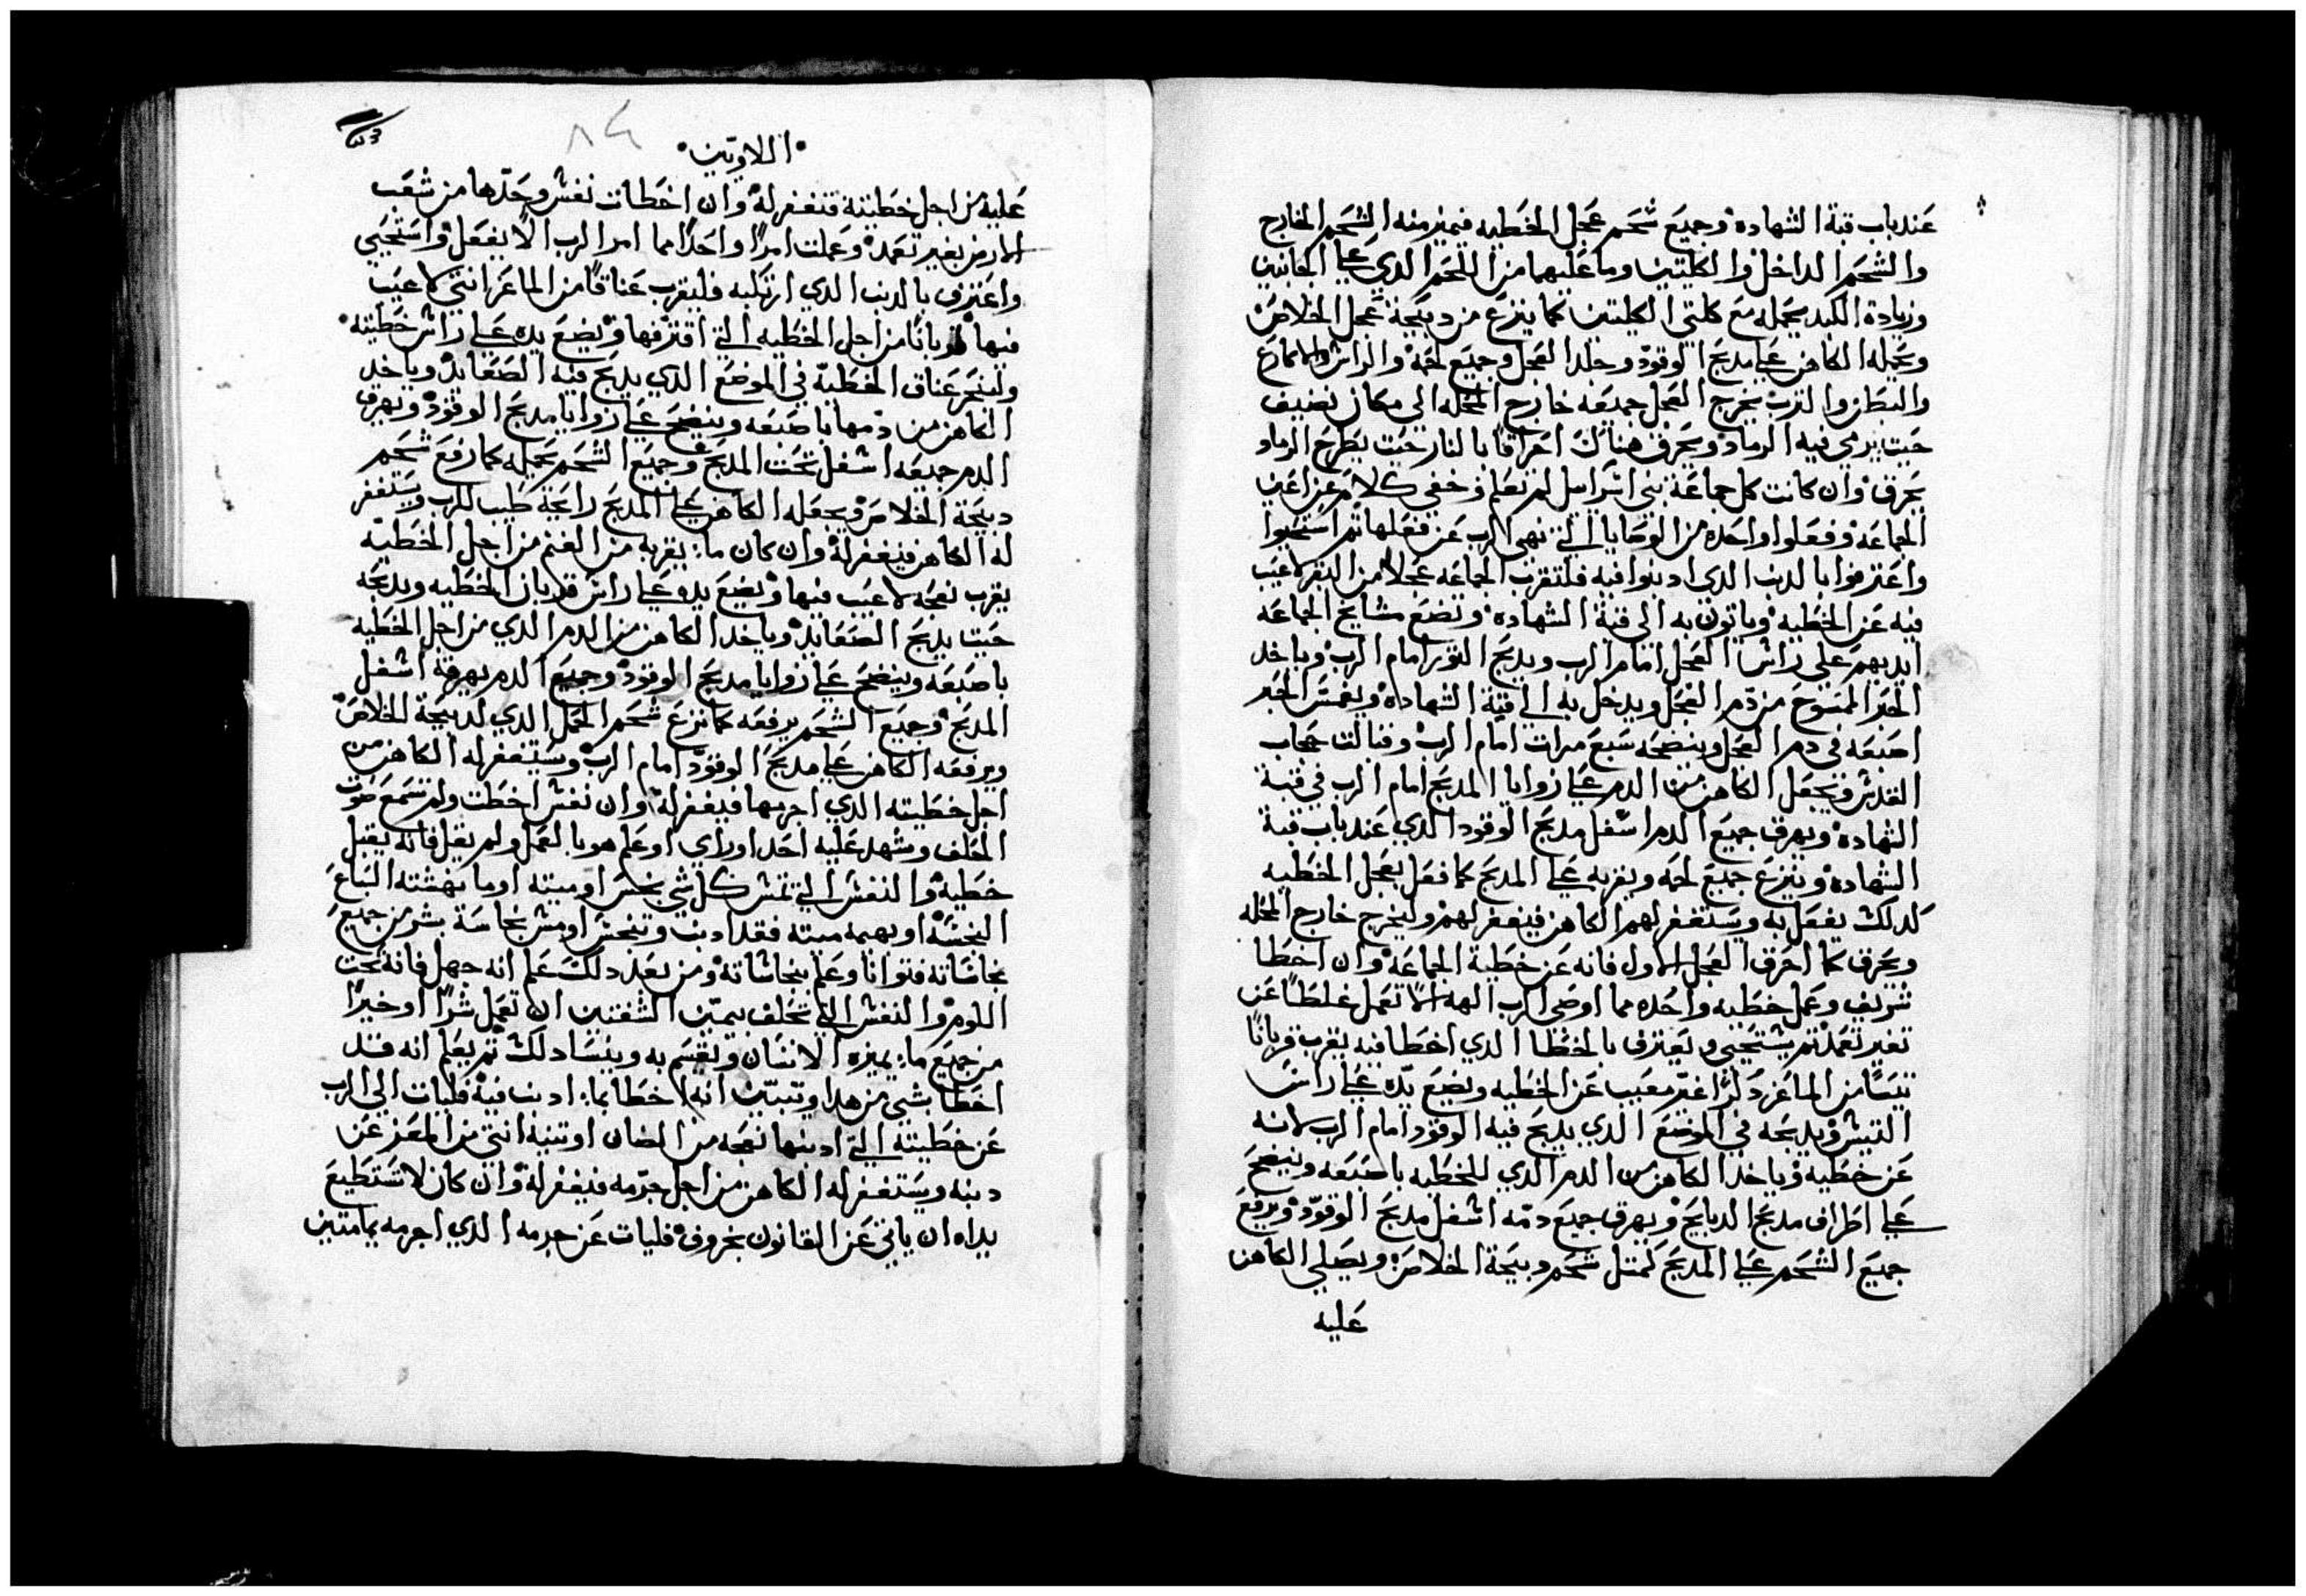 عند باب قبة الشهاده وجميع شحم عجل الخطيه فيميز منه الشحم الخارج
والشحم الداخل والكليتين وما عليهما من اللحم الدي علي الجانبين
وزيادة الكبد يحمله مع كلتي الكليتين كما ينزع من دبيحة عجل الخلاص
ويحمله الكاهن علي مدبح الوقود وجلد العجل وجميع لحمه والراس والاكارع
والبطن والترب يخرج العجل جميعه خارج المحله الي مكان نضيف
حيت يرمي فيه الرماد ويحرق هناك احراقًا بالنار حيت يطرح الرماد
يحرق وان كانت كل جماعة بني اسراييل لم تعلم وخفي كلام عن اعين
الجماعه وفعلوا واحده من الوصايا التي نهي الرب عن فعلها تم استحيوا
واعترفوا بالدنب الدي ادنبوا فيه فلتقرب الجماعه عجلاً من البقر لا عيب
فيه عن الخطيه وياتون به الي قبة الشهاده وتضع مشايخ الجماعه
ايديهم علي راس العجل امام الرب ويدبح التور امام الرب وياخد
الحبر الممسوح من دم العجل ويدخل به الي قبة الشهاده ويغمس الحبر
اصبعه في دم العجل وينضحه سبع مرات امام الرب وقبالت حجاب
القدس ويجعل الكاهن من الدم علي زوايا المدبح امام الرب في قبة
الشهاده ويهرق جميع الدم اسفل مدبح الوقود الدي عند باب قبة
الشهاده وينزع جميع لحمه ويقربه علي المدبح كما فعل بعجل الخطيه
كدلك يفعل به ويستغفر لهم الكاهن فيغفر لهم وليخرج خارج المحله
ويحرق كما احرق العجل الاول فانه عن خطية الجماعه وان اخطا
شريف وعمل خطيه واحده مما اوصي الرب الهه الا تعمل غلطًا عن
تغير تعمد تم يستحيي ويعترف بالخطا الدي اخطا فيه يقرب قربانًا
تيسًا من الماعز دكرًا غير معيب عن الخطيه ويضع يده علي راس
التيس ويدبحه في الموضع الدي يدبح فيه الوقود امام الرب لانه
عن خطيه وياخد الكاهن من الدم الدي للخطيه باصبعه وينضح
علي اطراف مدبح الدبايح ويهرق جميع دمه اسفل مدبح الوقود ويرفع
جميع الشحم علي المدبح كمتل شحم دبيحة الخلاص ويصلي الكاهن
عليه
اللاويين
عليه من اجل خطيته فتغفر له وان اخطات نفس وحدها من شعب
الارض بغير تعمد وعملت امرًا واحدًا مما امر الرب الا يفعل واستحيي
واعترف بالدنب الدي ارتكبه فليقرب عناقًا من الماعز انتي لا عيب
فيها قربانًا من اجل الخطيه التي اقترفها ويضع يده علي راس خطيته
ولينحر عناق الخطية في الموضع الدي يدبح فيه الصعايد وياخد
الكاهن من دمها باصبعه وينضح علي زوايا مدبح الوقود ويهرق
الدم جميعه اسفل تحت المدبح وجميع الشحم يحمله كما رفع شحم
دبيحة الخلاص ويجعله الكاهن علي المدبح رايحة طيب للرب ويستغفر
له الكاهن فيغفر له وان كان ما يقربه من الغنم من اجل الخطية
يقرب نعجه لا عيب فيها ويضع يده علي راس قربان الخطيه ويدبحه
حيت يدبح الصعايد وياخد الكاهن من الدم الدي من اجل الخطيه
باصبعه وينضح علي زوايا مدبح الوقود وجميع الدم يهرقه اسفل
المدبح وجميع الشحم يرفعه كما نزع شحم الحمل الدي لدبيحة الخلاص
ويرفعه الكاهن علي مدبح الوقود امام الرب ويستغفر له الكاهن من
اجل خطيته الدي اجرمها فيغفر له وان نفس اخطت ولم تسمع صوت
الحلف وشهد عليه احد او راي او علم هو بالعمل ولم يقل فانه يقبل
خطية والنفس التي تمس كل شي نجس او ميته او ما نهشته السباع
النجسه او بهيمه ميته فقد ادنب وتنجس او مس نجاسة بشر من جميع
نجاساته فتوانا وعلم بنجاساته ومن بعد دلك علم انه جهل فانه تحت
اللوم والنفس التي تحلف بيمين الشفتين ان تعمل شرًا او خيرًا
من جميع ما يميزه الانسان ويقسم به وينسا دلك تم يعلم انه قد
اخطا بشي من هدا وتبين انه اخطا بما ادنب فيه فليات الي الرب
عن خطيته التي ادنبها نعجه من الضان او تنيه انتي من المعز عن
دنبه ويستغفر له الكاهن من اجل جرمه فيغفر له وان كان لا تستطيع
يداه ان ياتي عن القانون بخروف فليات عن جرمه الدي اجرمه بيامتين